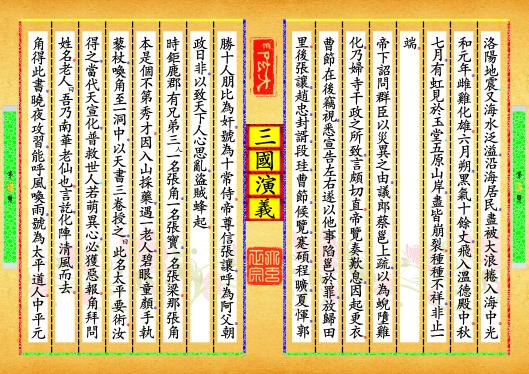 洛陽地震又海水泛溢沿海居民盡被大浪捲入海中光
和元年雌雞化雄六月朔黑氣十餘丈飛入溫德殿中秋
七月有虹見於玉堂五原山岸盡皆崩裂種種不祥非止一
端
帝下詔問群臣以災異之由議郎蔡邕上疏以為蜺墮雞
化乃婦寺干政之所致言頗切直帝覽奏歎息因起更衣
曹節在後竊視悉宣告左右遂以他事陷邕於罪放歸田
里後張讓趙忠封諝段珪曹節候覽蹇碩程曠夏惲郭
三國演義
勝十人朋比為奸號為十常侍帝尊信張讓呼為阿父朝
政日非以致天下人心思亂盜賊蜂起
時鉅鹿郡有兄弟三人一名張角一名張寶一名張梁那張角
本是個不第秀才因入山採藥遇一老人碧眼童顏手執
藜杖喚角至一洞中以天書三卷授之此名太平要術汝
得之當代天宣化普救世人若萌異心必獲惡報角拜問
姓名老人吾乃南華老仙也言訖化陣清風而去
角得此書曉夜攻習能呼風喚雨號為太平道人中平元